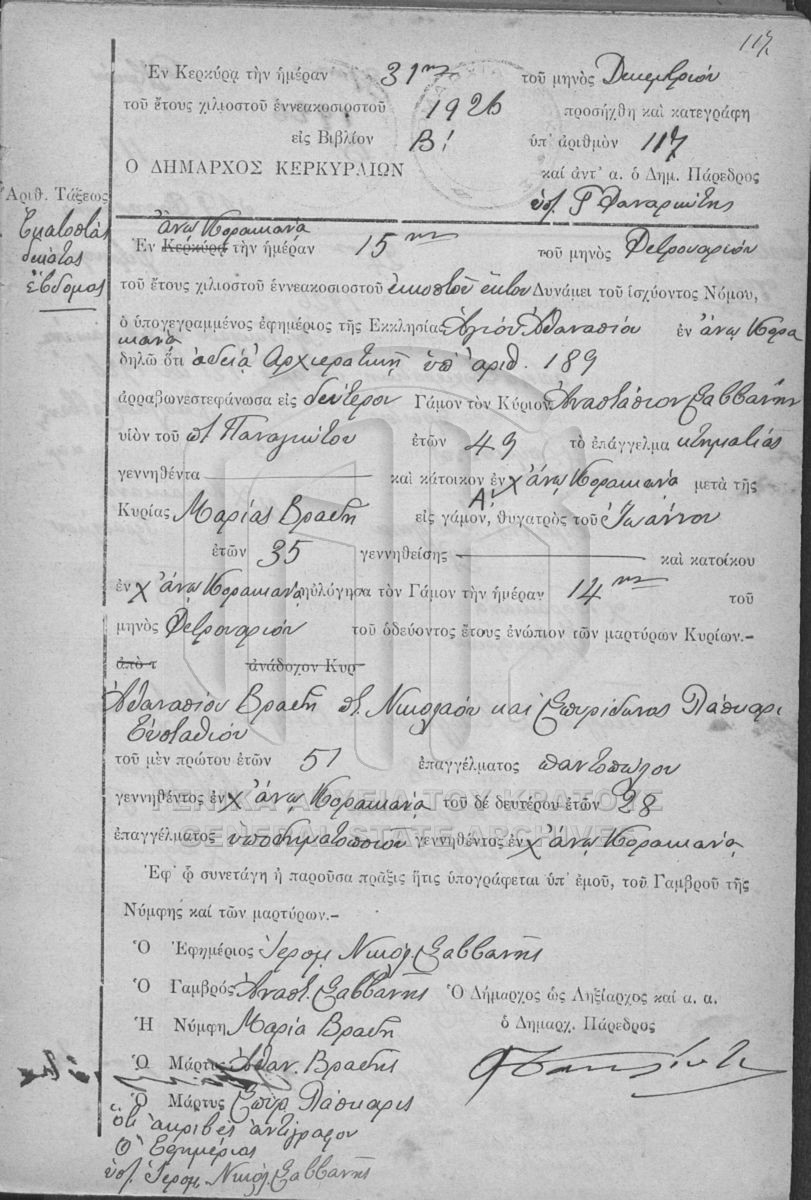 117
Ἐν Κερκύρᾳ τὴν ἡμέραν 31ην τοῦ μηνὸς Δεκεμβρίου
τοῦ ἔτους χιλιοστοῦ ἐννεακοσιοστοῦ 1926 προσήχθη καὶ κατεγράφη
εἰς Βιβλίον Β! ὑπ' ἀριθμὸν 117
Ο ΔΗΜΑΡΧΟΣ ΚΕΡΚΥΡΑΙΩΝ καί ἀντ' α. ὁ Δημ. Πάρεδρος
Ἀριθ. Τάξεως
ἑκατοστὰ
δεκάτας
ἑβδομας
ἄνω Κορακιάνα
Ἐν Κερκύρᾳ τὴν ἡμέραν 15ην τοῦ μηνὸς Φεβρουαρίου
τοῦ ἔτους χιλιοστοῦ ἐννεακοσιοστοῦ εἰκοστοῦ ἕκτου Δυνάμει τοῦ ἰσχύοντος Νόμου,
ὁ ὑπογεγραμμένος ἐφημέριος τῆς Ἐκκλησίας Ἁγίου Ἀθανασίου ἐν ἄνω Κορα
κιάνα
δηλῶ ὅτι ἀδείᾳ Ἀρχιερατικῇ ὑπ' ἀριθ. 189
ἀρραβωνεστεφάνωσα εἰς δεύτερον Γάμον τὸν Κύριον Ἀναστάσιον Σαββανῆν
υἱὸν τοῦ π. Παναγιώτου ἐτῶν 49 τὸ ἐπάγγελμα κτηματίας
γεννηθέντα καὶ κάτοικον ἐν χ ἄνω Κορακιάνᾳ μετὰ τῆς
Κυρίας Μαρίας Βραδῆ εἰς Α! γάμον, θυγατρὸς τοῦ Ἰωάννου
ἐτῶν 35 γεννηθείσης καὶ κατοίκου
ἐν χ ἄνω Κορακιάνᾳ ηὐλόγησα τὸν Γάμον τὴν ἡμέραν 14ην τοῦ
μηνὸς Φεβρουαρίου τοῦ ὁδεύοντος ἔτους ἐνώπιον τῶν μαρτύρων Κυρίων.–
ἀπὸ τ ἀνάδοχον Κυρ
Ἀθανασίου Βραδῆ π. Νικολάου καὶ Σπυρίδωνος Πάσκαρι
Εὐσταθίου
τοῦ μὲν πρώτου ἐτῶν 51 ἐπαγγέλματος παντοπώλου
γεννηθέντος ἐν χ ἄνω Κορακιάνᾳ τοῦ δέ δευτέρου ἐτῶν 28
ἐπαγγέλματος ὑποδηματοποιοῦ γεννηθέντος ἐν χ ἄνω Κορακιάνᾳ
Ἐφ' ᾧ συνετάγη ἡ παροῦσα πρᾶξις ἥτις ὑπογράφεται ὑπ' ἐμοῦ, τοῦ Γαμβροῦ τῆς
Νύμφης καί τῶν μαρτύρων.–
Ὁ Ἐφημέριος Ἱερομ. Νικόλ. Σαββανῆς
Ὁ Γαμβρός Ἀναστ. Σαββανῆς Ὁ Δήμαρχος ὡς Ληξίαρχος καί α. α.
Ἡ Νύμφη Μαρία Βραδῆ ὁ Δημαρχ. Πάρεδρος
Ὁ Μάρτυς Ἀθαν. Βραδῆς
Ὁ Μάρτυς Σπυρ Πάσκαρις
ὅτι ἀκριβὲς ἀντίγραφον
Ὁ Ἐφημέριος
ὑπ. Ἱερομ. Νικόλ. Σαββανῆς
ΓΕΝΙΚΑ ΑΡΧΕΙΑ ΤΟΥ ΚΡΑΤΟΥΣ
GENERAL STATE ARCHIVES